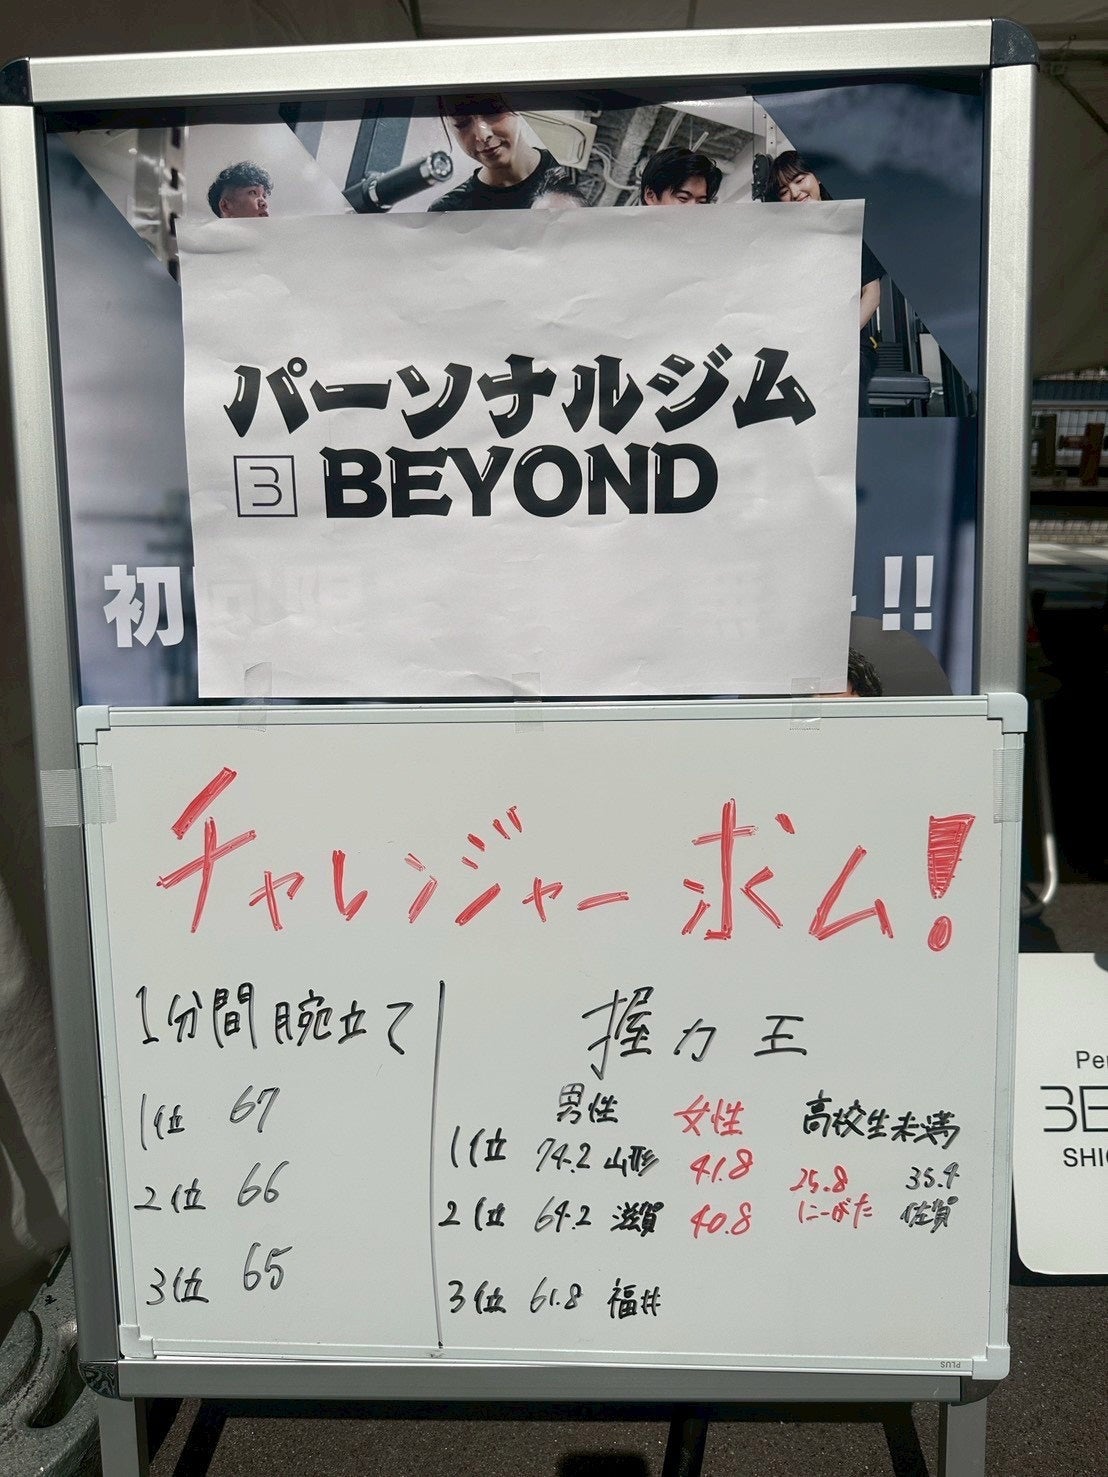 パーソナルジム
B BEYOND
初
!!
チャレンジャー求ム!
1分間腕立て
1位 67
2位 66
3位 65
握力王
男性 女性 高校生未満
1位 74.2 山形 41.8 25.8 35.4
2位 64.2 滋賀 40.8 にーがた 佐賀
3位 61.8 福井
PLUS
Per
BE
SHI